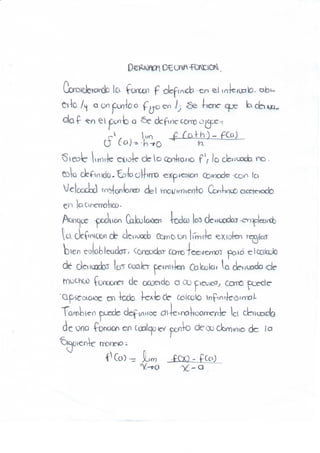 DERIVADA DE UNA FUNCION
Considerando la funcion f definida en el intervalo abi-
erto I y a un punto a fijo en I; Se tiene que la deriva-
da f en el punto a se define como sigue:
f'(a) = lim h→0 f(a+h) - f(a) / h
Si este limite existe de lo contrario f', la derivada no
esta definida. Esta ultima expresion coincide con la
Velocidad instantanea del movimiento Continuo acelerado
en la cinematica.
Aunque podrian Calcularse todas las derivadas empleando
la definicion de derivada como un limite existen reglas
bien establecidas, conocidas como teoremas para el calculo
de derivadas las cuales permiten Calcular la derivada de
muchas funciones de acuerdo a su como puede
apreciarse en todo texto de calculo infinitesimal
Tambien puede definirse alternativamente la derivada
de una funcion en cualquier punto de su dominio de la
Siguiente manera:
f'(a) = lim x→a f(x) - f(a) / x - a